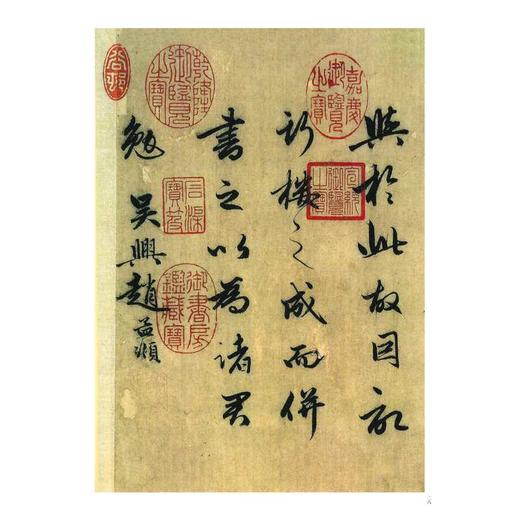 興於此故因記
斯樓之成而併
書之以為諸君
勉 吳興趙孟頫
嘉慶御覽之寶
宣統御覽之寶
乾隆御覽之寶
石渠寶笈
御書房鑑藏寶